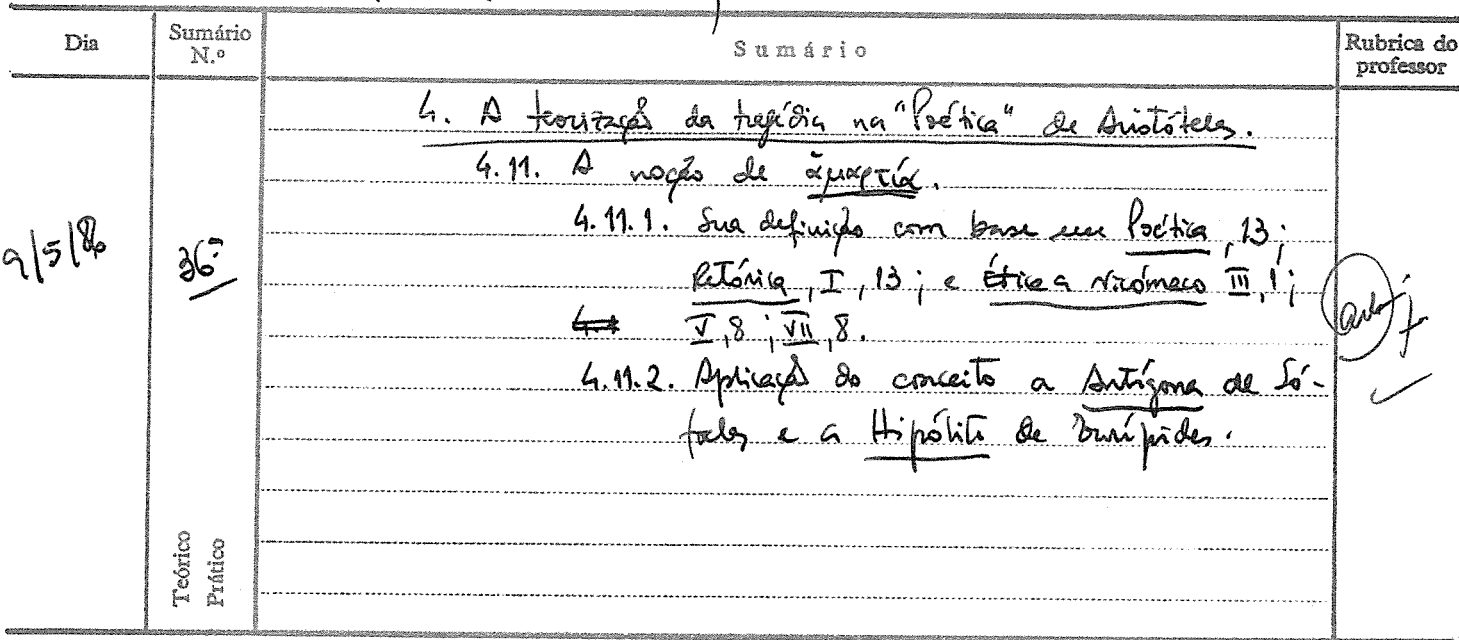 Dia
Sumário N.º
Sumário
Rubrica do professor
9/5/86
36º
4. A teorização da tragédia na "Poética" de Aristóteles.
4.11. A noção de ἁμαρτία.
4.11.1. Sua definição com base em Poética, 13;
Retórica, I, 13; e Ética a Nicómaco III, 1;
V, 8; VII, 8.
4.11.2. Aplicação do conceito a Antígona de Só-
focles e a Hipólito de Eurípides.
Teórico
Prático